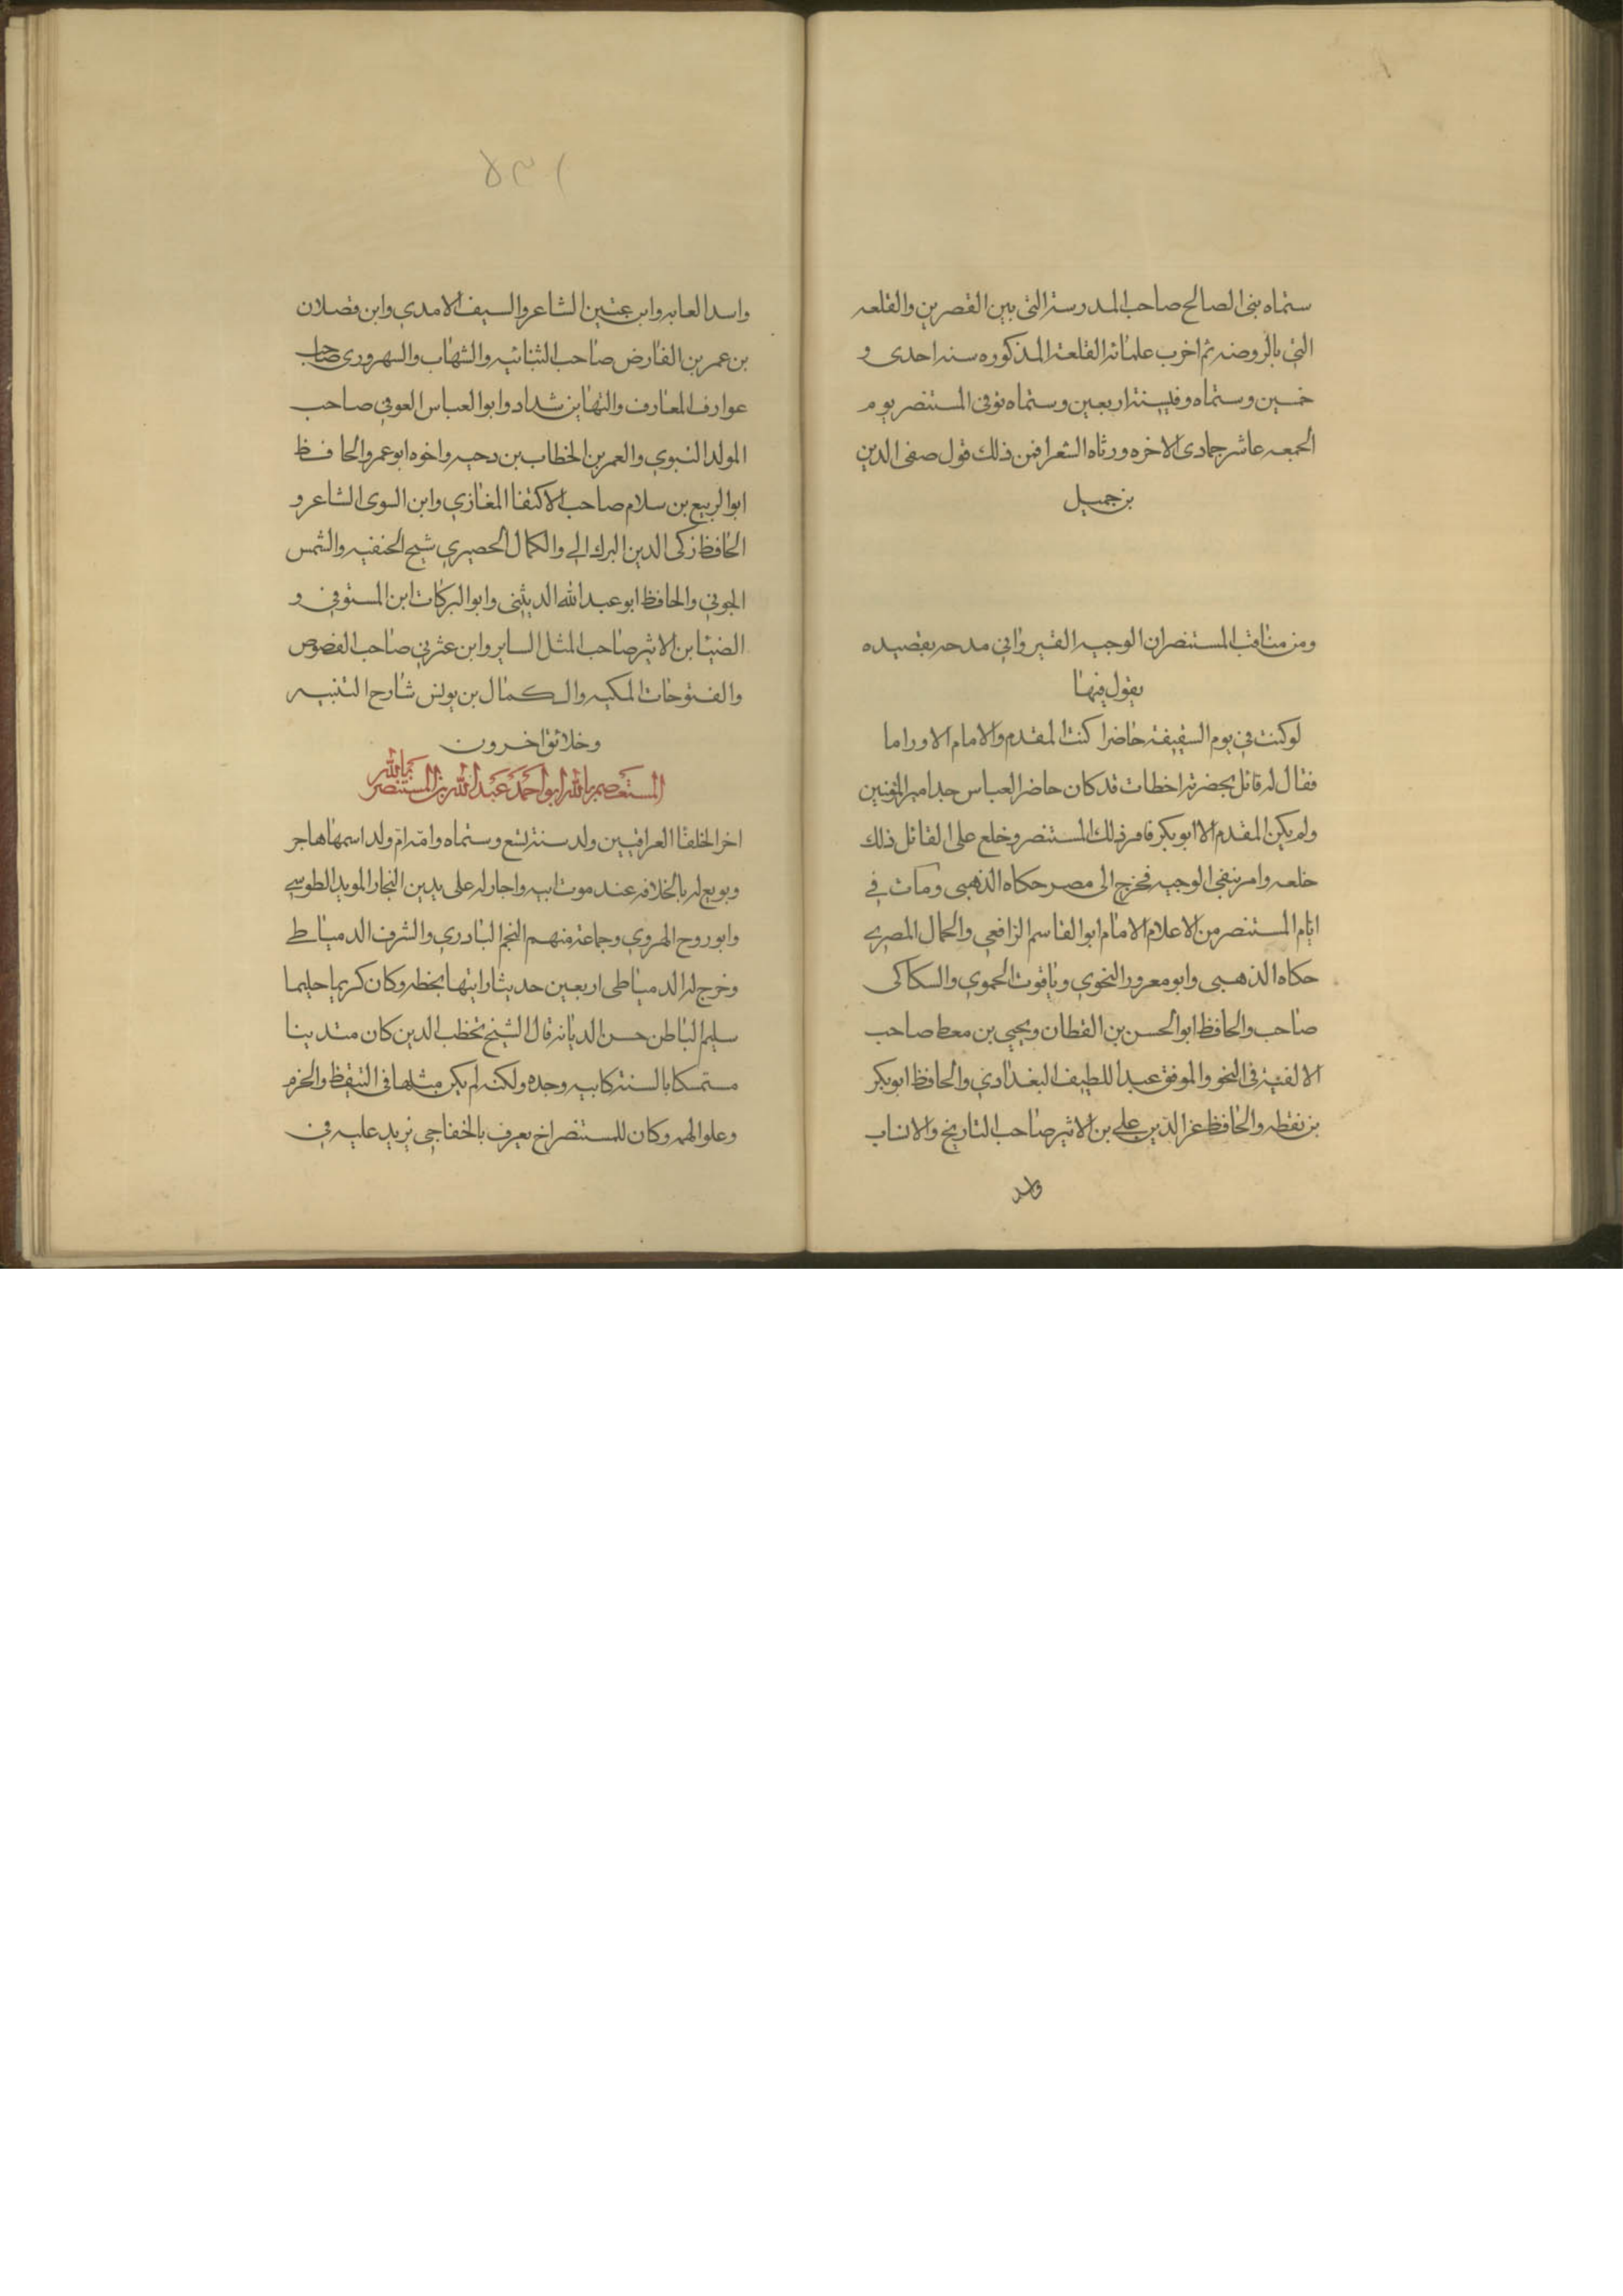 ستماه بنى الصالح صاحب المدرسة التي بين القصرين والقلعه
التي بالروضه ثم اخرب علمانه القلعة المذكوره سنه احدى و
خمسين وستماه وفي سنة اربعين وستماه توفى المستنصر يوم
الجمعه عاشر جمادى الاخره ورثاه الشعرا فمن ذلك قول صفى الدين
بن جميل
ومن مناقب المستنصر ان الوجيه القيرواني مدحه بقصيده
يقول فيها
لو كنت في يوم السقيفة حاضرا كنت المقدم والامام الاوراما
فقال له قائل بحضرته اخطات قد كان حاضر العباس جد امير المؤمنين
ولم يكن المقدم الا ابو بكر فامر ذلك المستنصر وخلع على القائل ذلك
خلعه وامر بنفي الوجيه فخرج الى مصر حكاه الذهبى ومات في
ايام المستنصر من الاعلام الامام ابو القاسم الرافعي والجمال المصري
حكاه الذهبى وابو معرور النحوي وياقوت الحموي والسكاكى
صاحب والحافظ ابو الحسن بن القطان ويحيى بن معط صاحب
الالفية في النحو والموفق عبد اللطيف البغدادي والحافظ ابو بكر
بن نقطه والحافظ عز الدين علي بن الاثير صاحب التاريخ والانساب
واسد
١٣٥
واسد الغابه وابن عتين الشاعر والسيف الامدي وابن فضلان
بن عمر بن الفارض صاحب التائيه والشهاب والسهروري صاحب
عوارف المعارف والبها بن شداد وابو العباس العوفي صاحب
المولد النبوي والعمر بن الخطاب بن دحيه واخوه ابو عمر والحافظ
ابو الربيع بن سلام صاحب الاكتفا المغازي وابن السوى الشاعر و
الحافظ زكى الدين البرزالي والكمال الحصيري شيح الحنفيه والشمس
الجوني والحافظ ابو عبد الله الديثنى وابو البركات ابن المستوفي و
الضيا بن الاثير صاحب المثل الساير وابن عثربي صاحب الفصوص
والفتوحات المكيه والكمال بن يونس شارح التنبيه
وخلائق اخرون
المستعصم بالله ابو احمد عبد الله بن المستنصر بالله
اخر الخلفا العراقيين ولد سنة تسع وستماه وامه ام ولد اسمها هاجر
وبويع له بالخلافه عند موت ابيه واجار له على يد بن النجار المويد الطوسي
وابو روح الهروي وجماعة منهم النجم البادري والشرف الدمياطي
وخرج له الدمياطى اربعين حديثا رايتها بخطه وكان كريما حليما
سليم الباطن حسن الديانه قال الشيخ تخطب الدين كان متدينا
مستمسكا بالسنة كابيه وجده ولكنه لم يكن مثلها في التيقظ والحزم
وعلو الهمه وكان للمستنصر اخ يعرف بالخفاجي يزيد عليه في